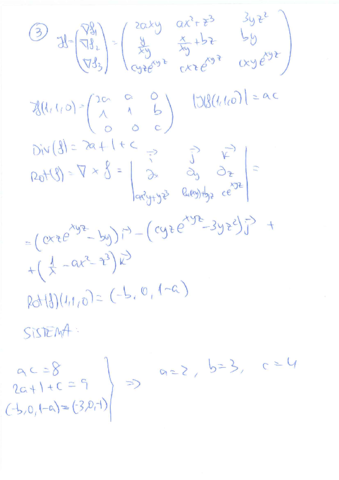 ③ Jf = (∇f1 ∇f2 ∇f3) = ( 2axy ax²+z³ 3yz²
y/xy x/xy+bz by
cyze^xyz cxze^xyz cxye^xyz )
Jf(1,1,0) = ( 2a a 0
1 1 b
0 0 c ) |Jf(1,1,0)| = ac
Div(f) = 2a+1+c
Rot(f) = ∇ × f = | i→ j→ k→
∂x ∂y ∂z
ax²y+yz³ ce^xyz | =
= (cxze^xyz - by) i→ - (cyze^xyz - 3yz²) j→ +
+ (1/x - ax² - z³) k→
Rot(f)(1,1,0) = (-b, 0, 1-a)
SISTEMA:
ac = 8
2a+1+c = 9
(-b,0,1-a) = (-3,0,-1) ⟹ a=2, b=3, c=4